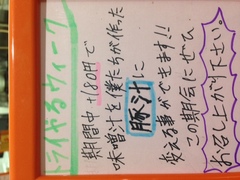 トライやるウィーク
期間中+180円で
味噌汁を僕たちが作った
豚汁に
変える事ができます!!
この期会にぜひ
お召し上がり下さい。